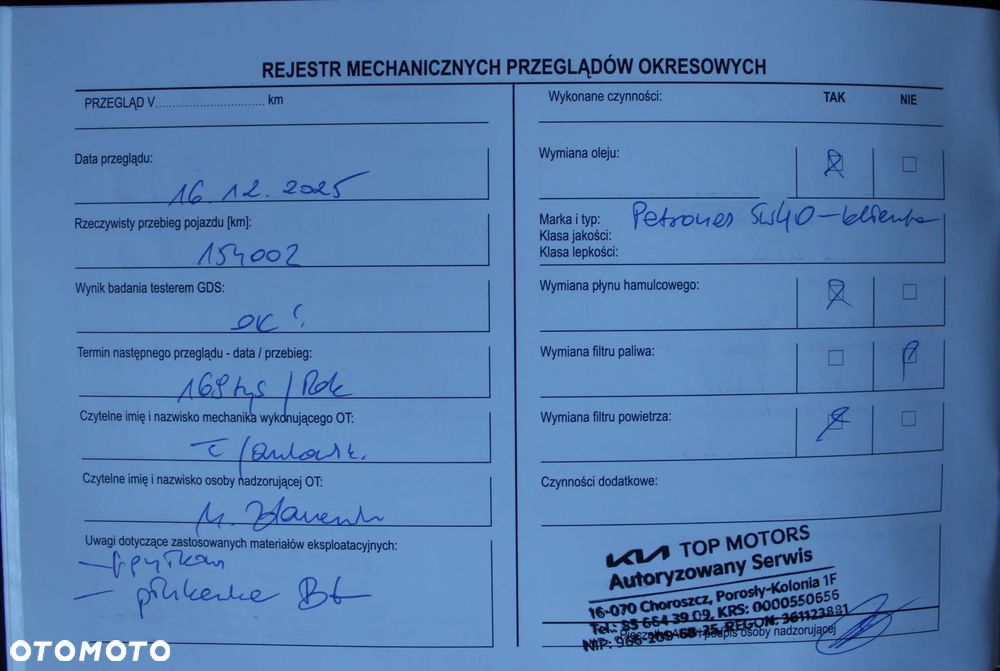 REJESTR MECHANICZNYCH PRZEGLĄDÓW OKRESOWYCH
PRZEGLĄD V................................ km
Data przeglądu:
16.12.2025
Rzeczywisty przebieg pojazdu [km]:
154002
Wynik badania testerem GDS:
OK!
Termin następnego przeglądu - data / przebieg:
169tys / Rok
Czytelne imię i nazwisko mechanika wykonującego OT:
Czytelne imię i nazwisko osoby nadzorującej OT:
M.
Uwagi dotyczące zastosowanych materiałów eksploatacyjnych:
Wykonane czynności: TAK NIE
Wymiana oleju:
Marka i typ: Petronas 5W40 - klienta
Klasa jakości:
Klasa lepkości:
Wymiana płynu hamulcowego:
Wymiana filtru paliwa:
Wymiana filtru powietrza:
Czynności dodatkowe:
KIA TOP MOTORS
Autoryzowany Serwis
16-070 Choroszcz, Porosły-Kolonia 1F
Tel.: 85 664 39 09, KRS: 0000550656
NIP: 966-209-68-25, REGON: 361123881
podpis osoby nadzorującej
OTOMOTO